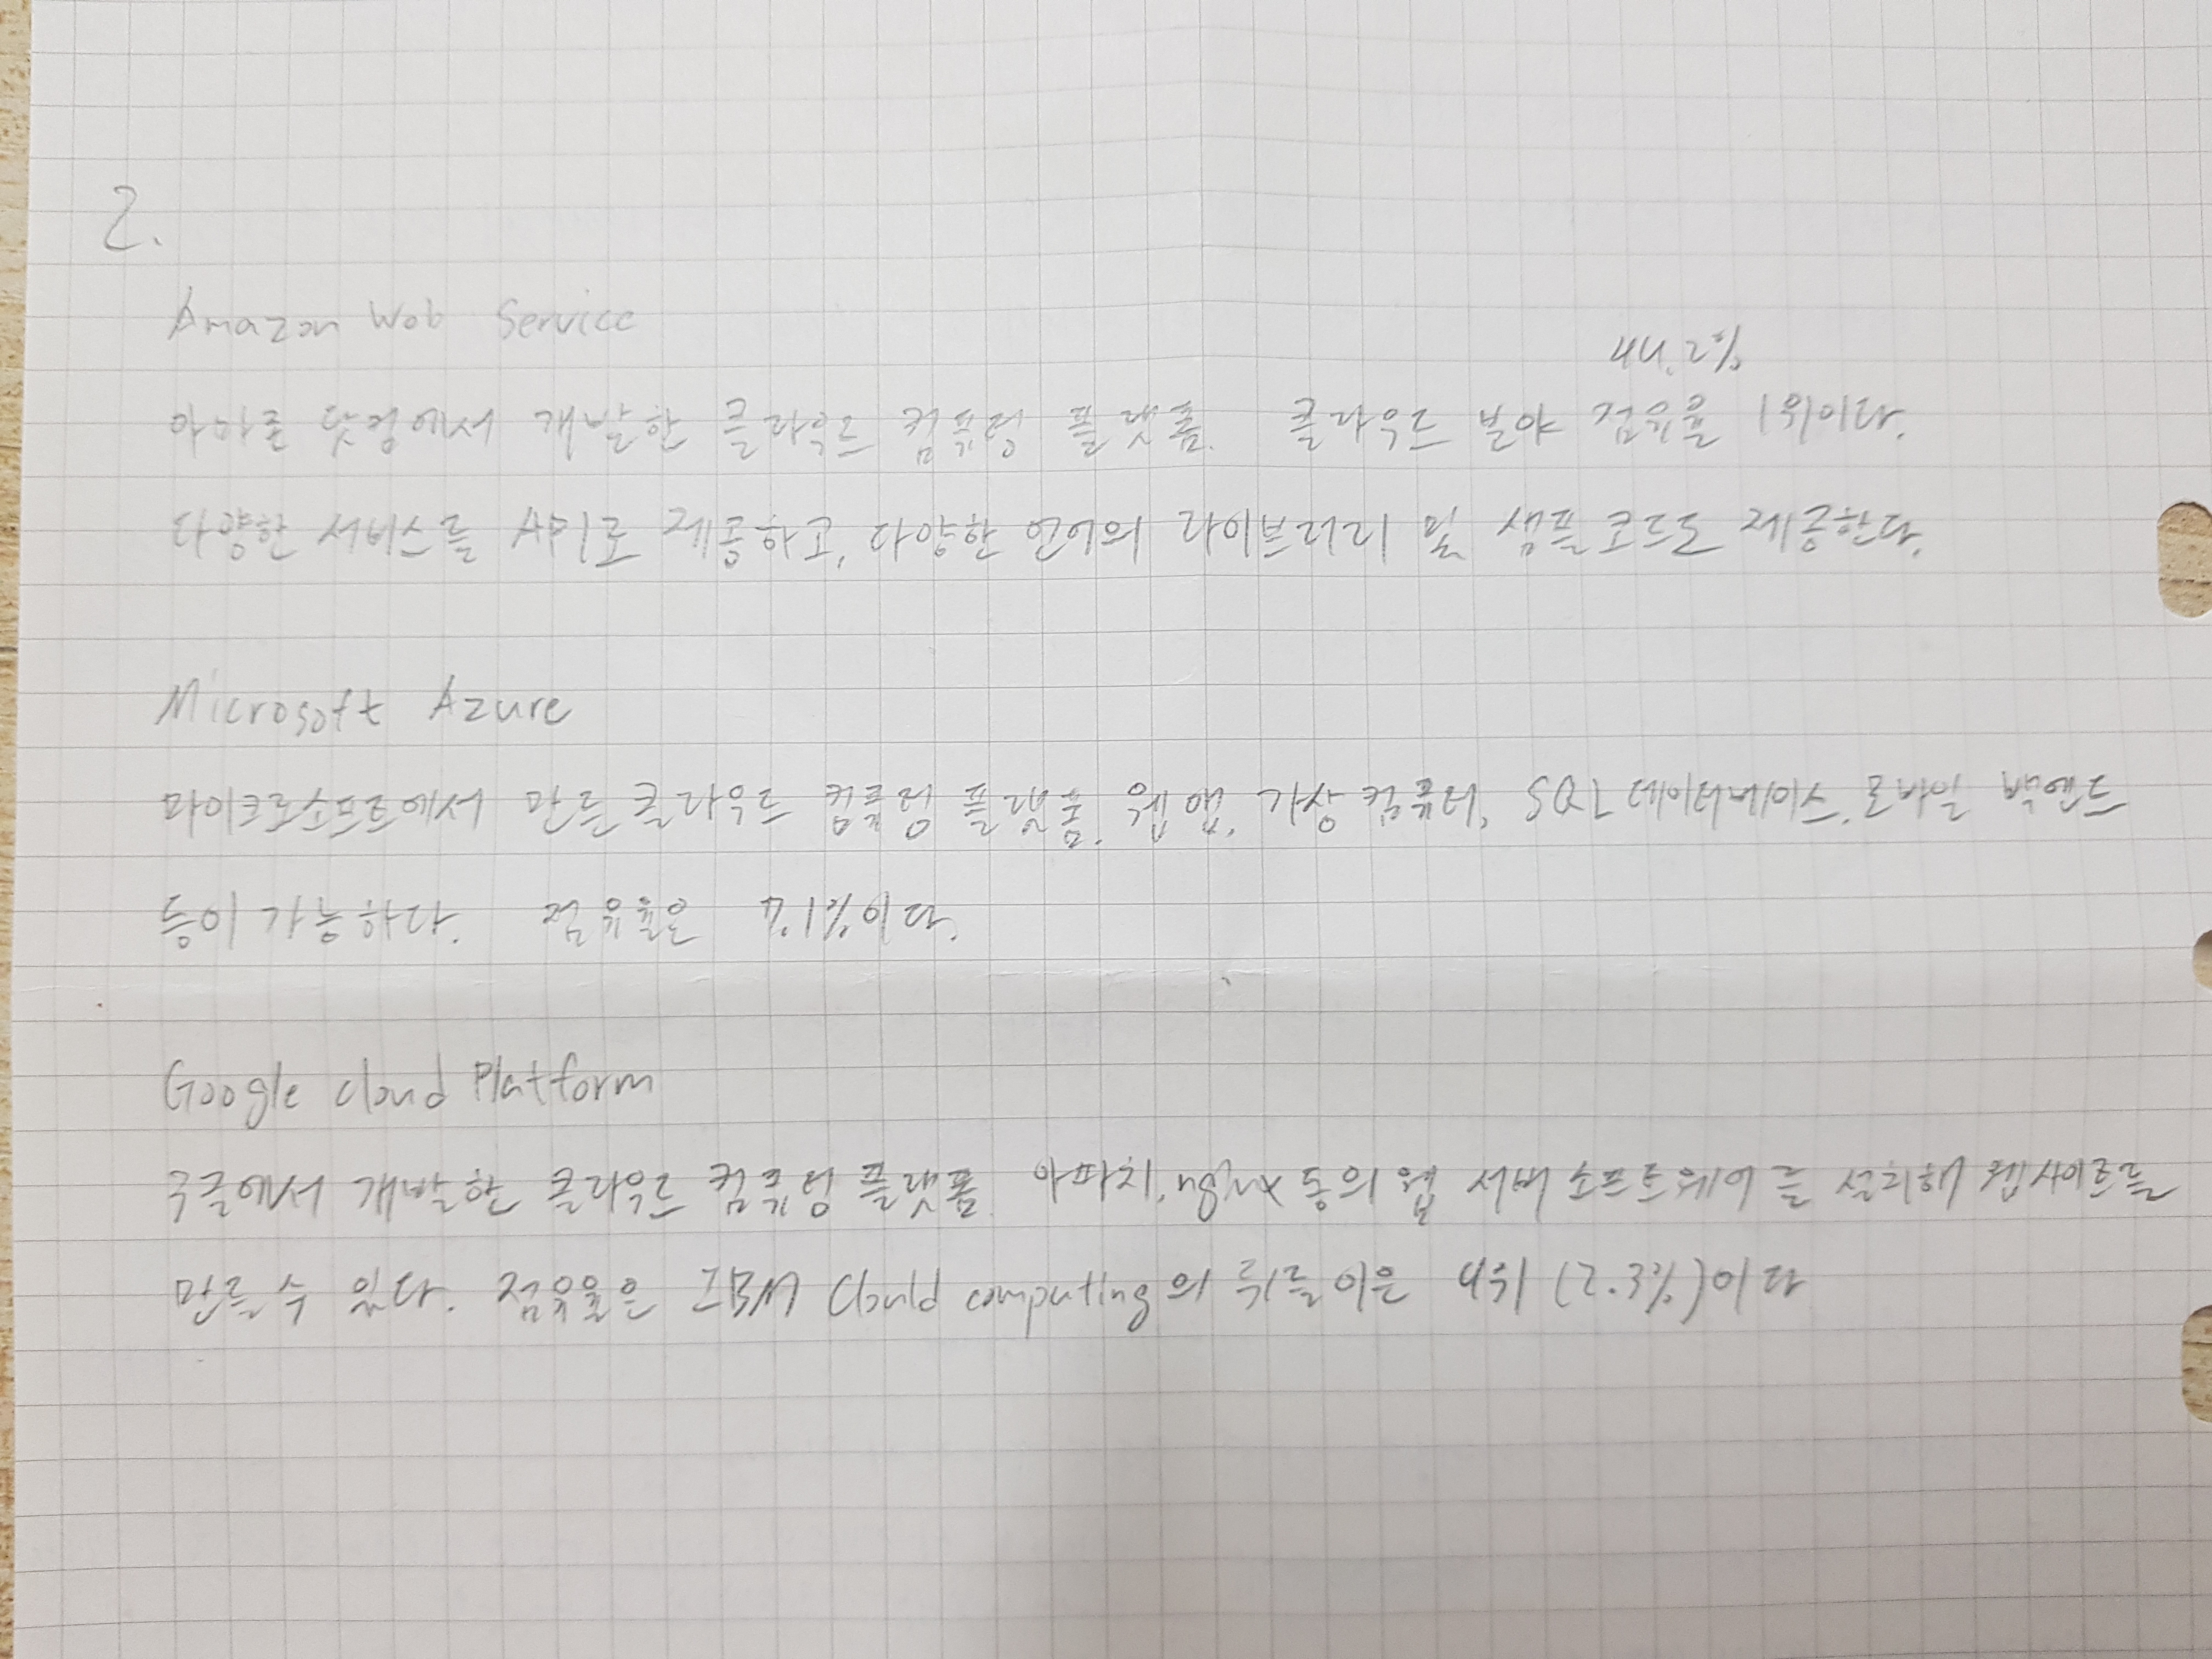 2.
Amazon Web Service
44.2%
아마존 닷컴에서 개발한 클라우드 컴퓨팅 플랫폼. 클라우드 분야 점유율 1위이다.
다양한 서비스를 API로 제공하고, 다양한 언어의 라이브러리 및 샘플코드도 제공한다.
Microsoft Azure
마이크로소프트에서 만든 클라우드 컴퓨팅 플랫폼. 웹 앱, 가상 컴퓨터, SQL 데이터베이스, 모바일 백엔드
등이 가능하다. 점유율은 7.1%이다.
Google cloud Platform
구글에서 개발한 클라우드 컴퓨팅 플랫폼. 아파치, nginx 등의 웹 서버 소프트웨어를 설치해 웹사이트를
만들 수 있다. 점유율은 IBM Cloud computing의 뒤를 이은 4위 (2.3%)이다